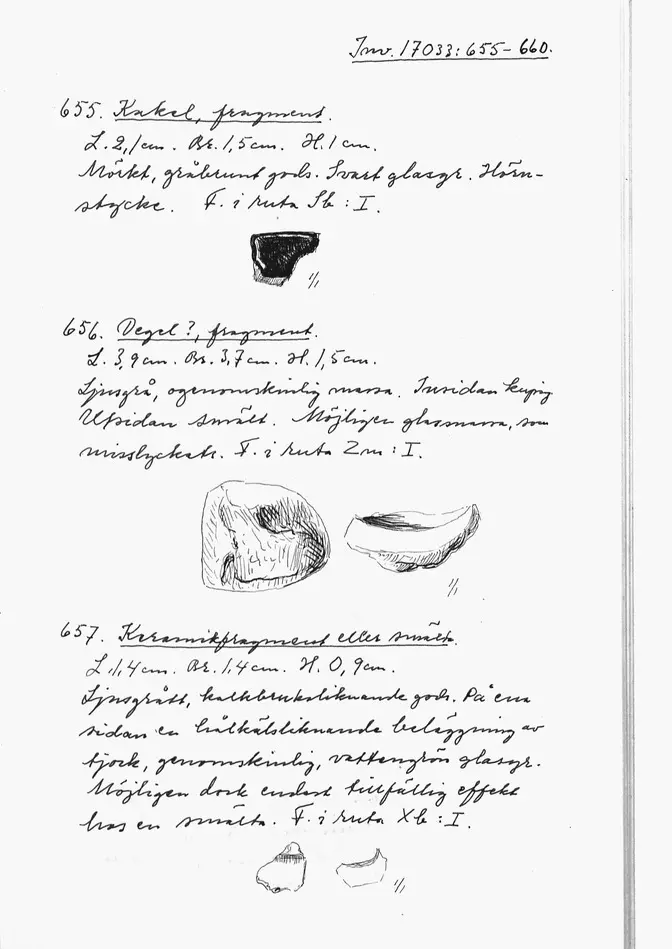 Inv. 17033: 655 - 660.
655. Kakel, fragment.
L. 2,1 cm. Br. 1,5 cm. H. 1 cm.
Mörkt, gråbrunt gods. Svart glasyr. Hörn-
stycke. F. i ruta Sb : I.
1/1
656. Degel?, fragment.
L. 3,9 cm. Br. 3,7 cm. H. 1,5 cm.
Ljusgrå, ogenomskinlig massa. Insidan kupig
Utsidan smält. Möjligen glasmassa, som
misslyckats. F. i ruta Zm : I.
1/1
657. Keramikfragment eller smälta.
L. 1,4 cm. Br. 1,4 cm. H. 0,9 cm.
Ljusgrått, kalkbruksliknande gods. På ena
sidan en hålkälsliknande beläggning av
tjock, genomskinlig, vattengrön glasyr.
Möjligen dock endast tillfällig effekt
hos en smälta. F. i ruta Xb : I.
1/1